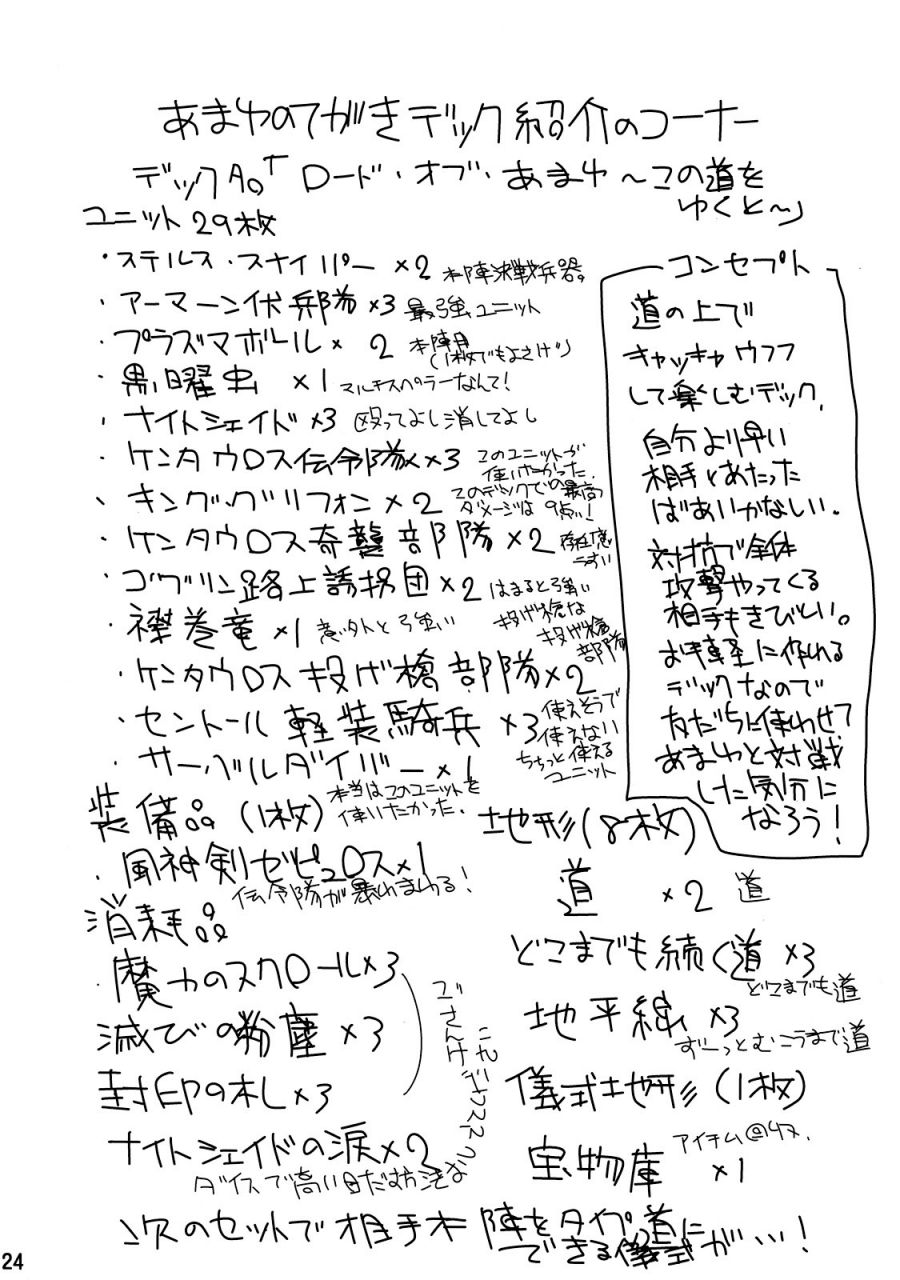 あまわのてがきデック紹介のコーナー
デックA。「ロード・オブ・あまわ～この道を
ゆくと～」
ユニット29枚
・ステルス・スナイパー ×2 本陣決戦兵器。
・アーマーン伏兵部隊×3 最強ユニット
・プラズマボール× 2 本陣用
(1枚でもよさげ)
・黒曜虫 ×1 マルチスペラーなんて!
・ナイトシェイド×3 殴ってよし消してよし
・ケンタウロス伝令隊××3 このユニットが
使いたかった.
・キング・グリフォン×2 このデックでの最高
ダメージは9点!!
・ケンタウロス奇襲部隊×2 存在意
・ゴブリン路上誘拐団×2 はまると強い
・襟巻竜 ×1 意外と強い
・ケンタウロス投げ槍部隊×2
投げ槍な
投げ槍
部隊
・セントール軽装騎兵 ×3 使えそうで
使えない
ちょっと使える
ユニット
・サーバルダイバー×1
本当はこのユニットを
使いたかった.
装備品(1枚)
・風神剣ゼピュロス×1
伝令隊が暴れまわる!
消耗品
魔力のスクロール×3
滅びの粉塵×3
封印の札×3
ナイトシェイドの涙×2
ダイスで高い目だす方法な
コンセプト
道の上で
キャッキャウフフ
して楽しむデック.
自分より早い
相手とあたった
ばあいかなしい.
対抗で全体
攻撃やってくる
相手もきびしい。
お手軽に作れる
デックなので
友だちに使わせて
あまわと対戦
した気分に
なろう!
地形(8枚)
道 ×2 道
どこまでも続く道×3
どこまでも道
地平線 ×3
ずーっとむこうまで道
儀式地形(1枚)
宝物庫 ×1
次のセットで相手本陣をタイプ道に
できる儀式が…!
24